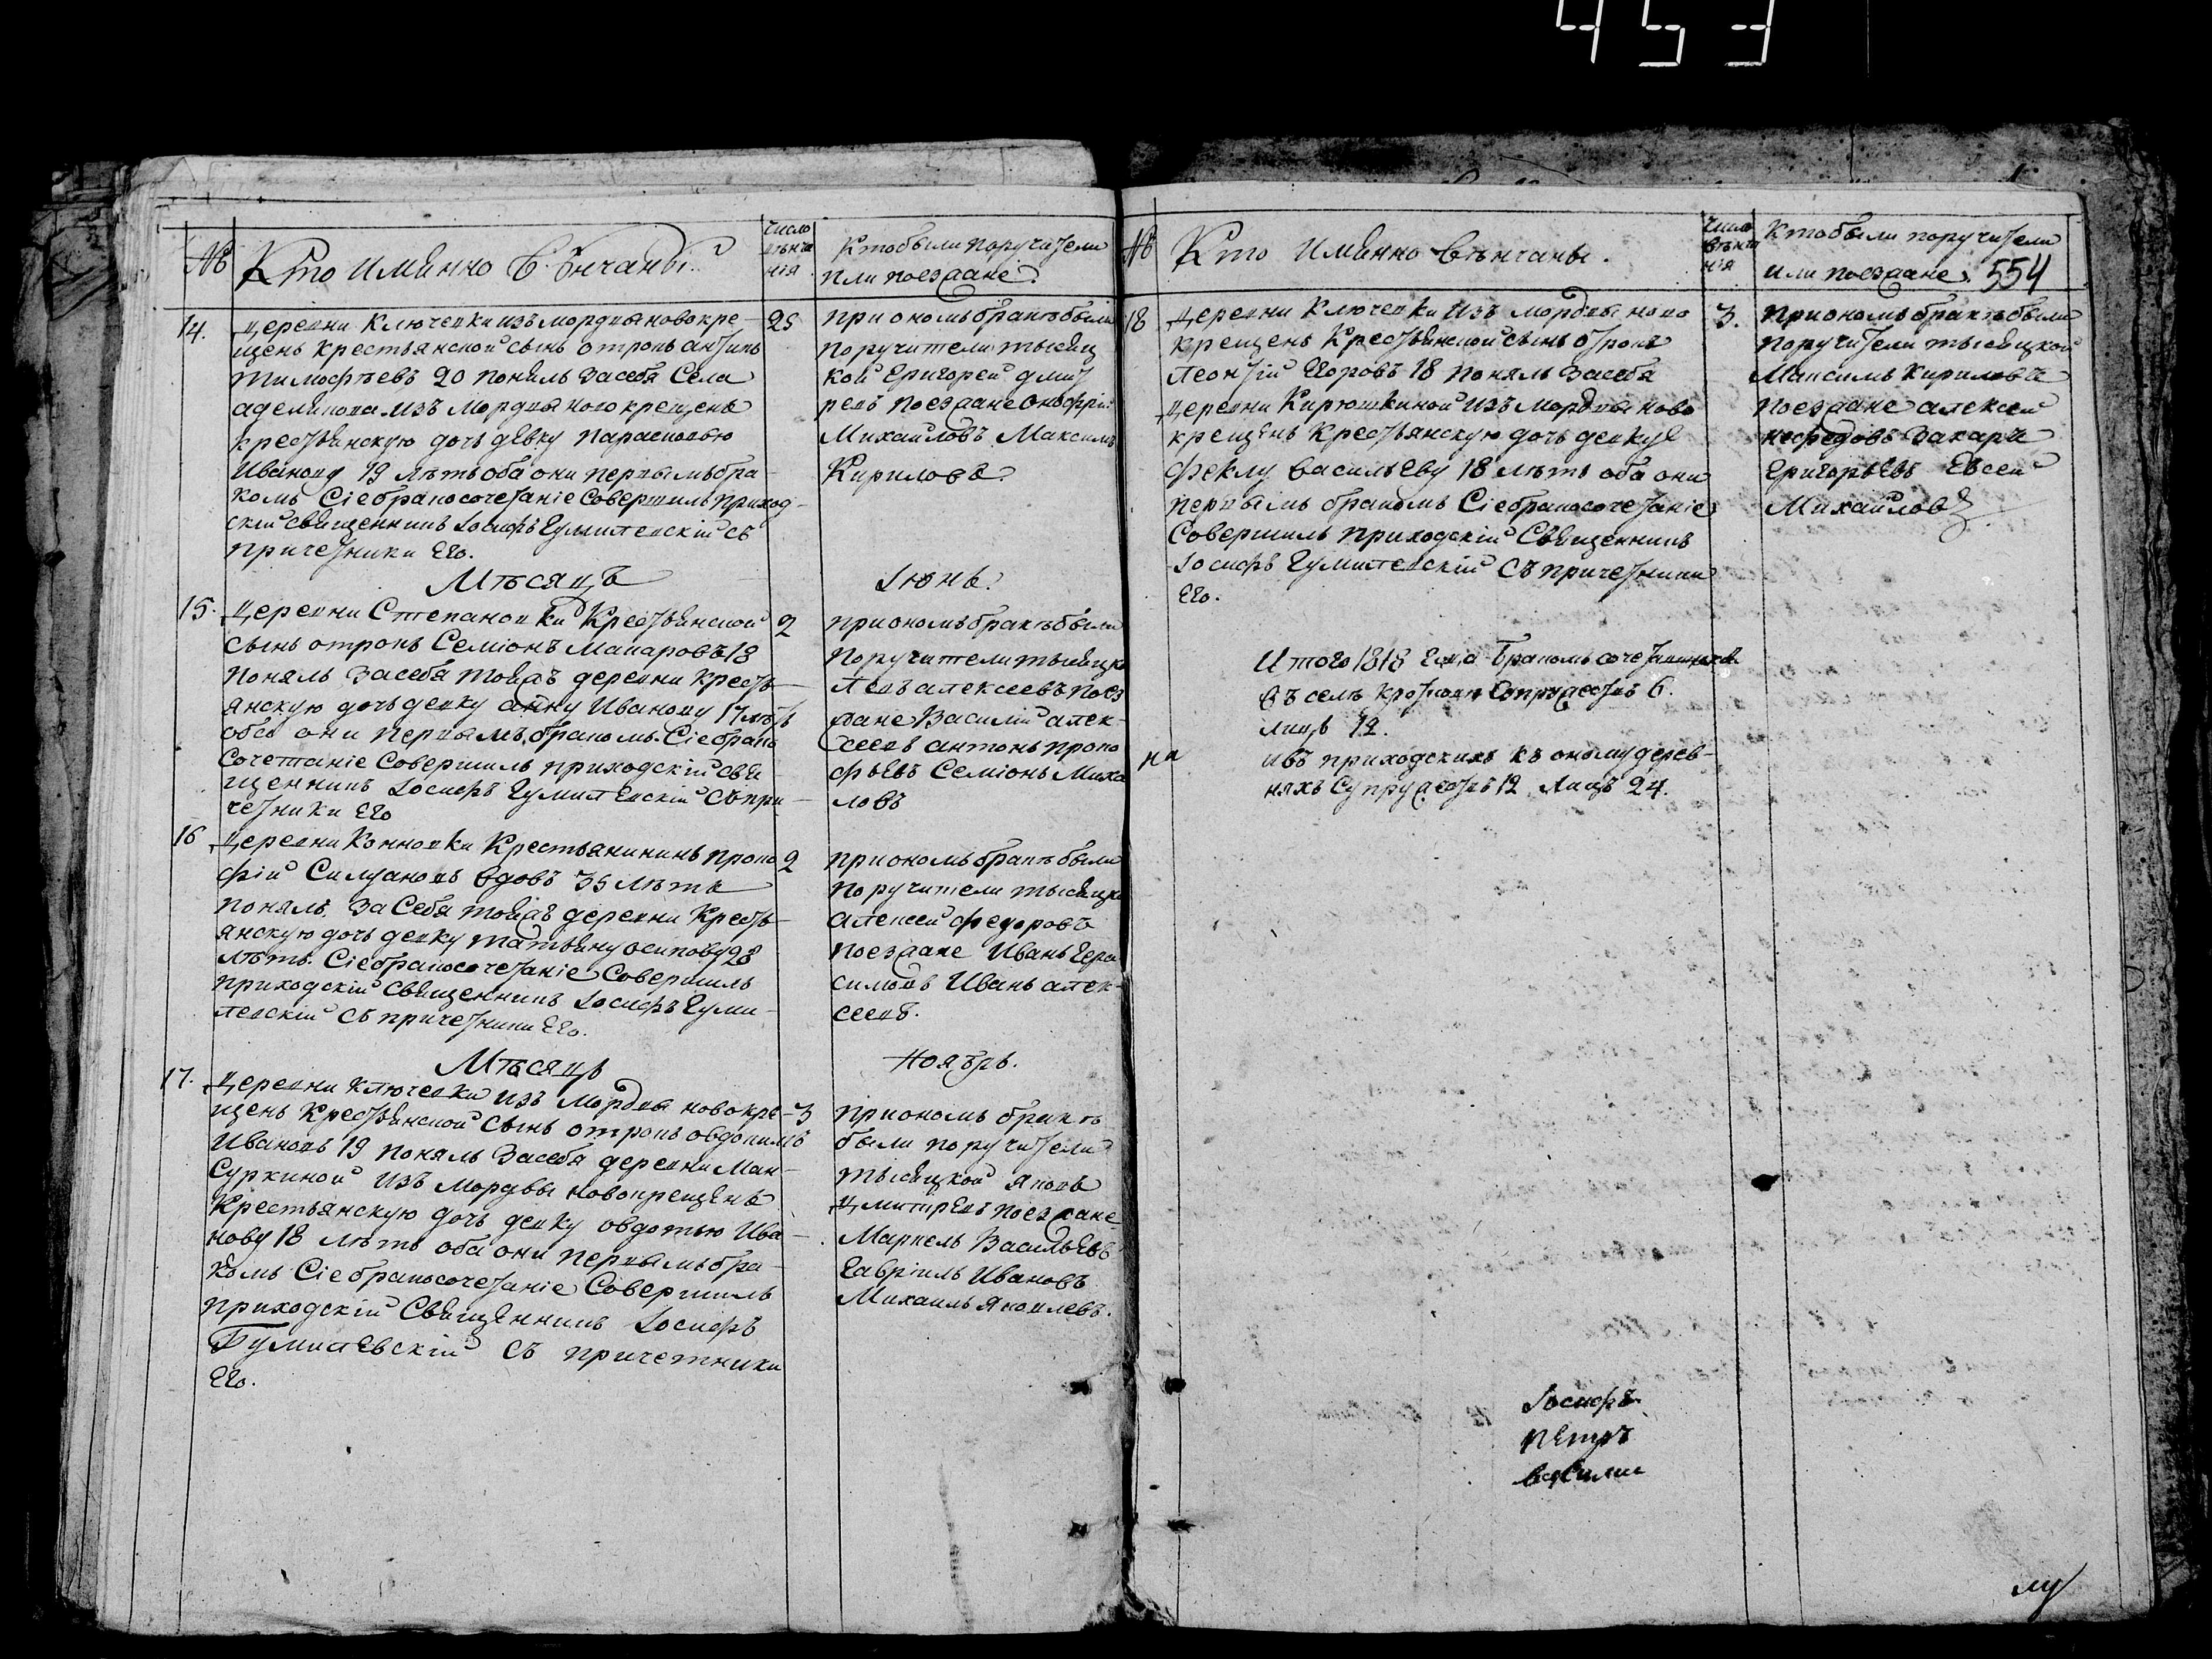 453
№
Кто имянно Венчаны
число
венча
нія
Кто были поручители
или поезжане
14. Деревни Ключевки изъ мордвы новокре-
щенъ крестьянской сынъ отрокъ антипъ
Тимофѣевъ 20 понялъ засебя Села
аделякова изъ Мордвы ново крещенъ
крестьянскую дочь девку парасковью
Иванову 19 лѣтъ оба они первымъ бра-
комъ Сіе бракосочетаніе совершилъ приход-
скій священникъ Іосифъ Гумилевскій съ
причетники Его.
25
при ономъ бракѣ были
поручители тысяц
кой Григорей дмит
ревъ поезжане онофрій
Михаиловъ Максимъ
Кириловъ
Мѣсяцъ Іюнь.
15. Деревни Степановки Крестьянской
сынъ отрокъ Семіонъ Макаровъ 18
понялъ засебя тояжъ деревни крестъ-
янскую дочь девку анну Иванову 17 лѣтъ
оба они первымъ бракомъ. Сіе брако
Сочетаніе Совершилъ приходскій свя
щенникъ Іосифъ Гумилевскій съ при-
четники Его
2
при ономъ бракѣ были
поручители тысяцко
Левъ алексеевъ поез
жане Василій алек-
сеевъ антонъ проко
фьевъ Семіонъ Миха
ловъ
16 Деревни Конновки Крестьянинъ проко
фій Силуановъ вдовъ 35 лѣтъ
понялъ за Себя тояжъ деревни Кресть-
янскую дочь девку татьяну осипову 28
лѣтъ. Сіе бракосочетаніе Совершилъ
приходскій священникъ Іосифъ Гуми-
левскій съ причетники Его.
2
при ономъ бракѣ были
поручители тысяцко
алексей федоровъ
поезжане Иванъ Гера
симовъ Иванъ алек-
сеевъ.
Мѣсяцъ Ноябрь.
17. Деревни Ключевки изъ Мордвы новокре-
щенъ Крестьянской Сынъ отрокъ овдокимъ
Ивановъ 19 понялъ Засебя деревни Ман-
Суркиной изъ мордвы новокрещенъ
Крестьянскую дочь девку овдотью Ива-
нову 18 лѣтъ оба они первымъ бра-
комъ Сіе бракосочетаніе Совершилъ
приходскій Священникъ Іосифъ
Гумилевскій съ причетники
Его.
3
при ономъ бракѣ
были поручители
тысяцкой яковъ
Дмитревъ поезжане
Маркелъ Васильевъ
Гавріилъ Ивановъ
Михаилъ яковлевъ.
№
Кто имянно венчаны.
число
венча
нія
Кто были поручители
или поезжане. 554
18 Деревни Ключевки изъ мордвы ново
крещенъ крестьянской сынъ отрокъ
Леонтій Егоровъ 18 понялъ Засебя
Деревни Кирюшкиной изъ мордвы ново
крещенъ Крестьянскую дочь девку
феклу васильеву 18 лѣтъ оба они
первымъ бракомъ Сіе бракосочетаніе
Совершилъ приходскій Священникъ
Іосифъ Гумилевскій съ причетники
Его.
3.
при ономъ бракѣ были
поручители тысяцкой
Максимъ кириловъ
поезжане алексей
нефедовъ Захаръ
Григорьевъ Евсей
Михаиловъ
Итого 1818 Года Бракомъ сочетавшихся
Въ селѣ Супружествъ 6.
лицъ 12.
ивъ приходскихъ къ оному дерев-
няхъ Супружествъ 12 Лицъ 24.
на
Іосифъ
петръ
василии
му